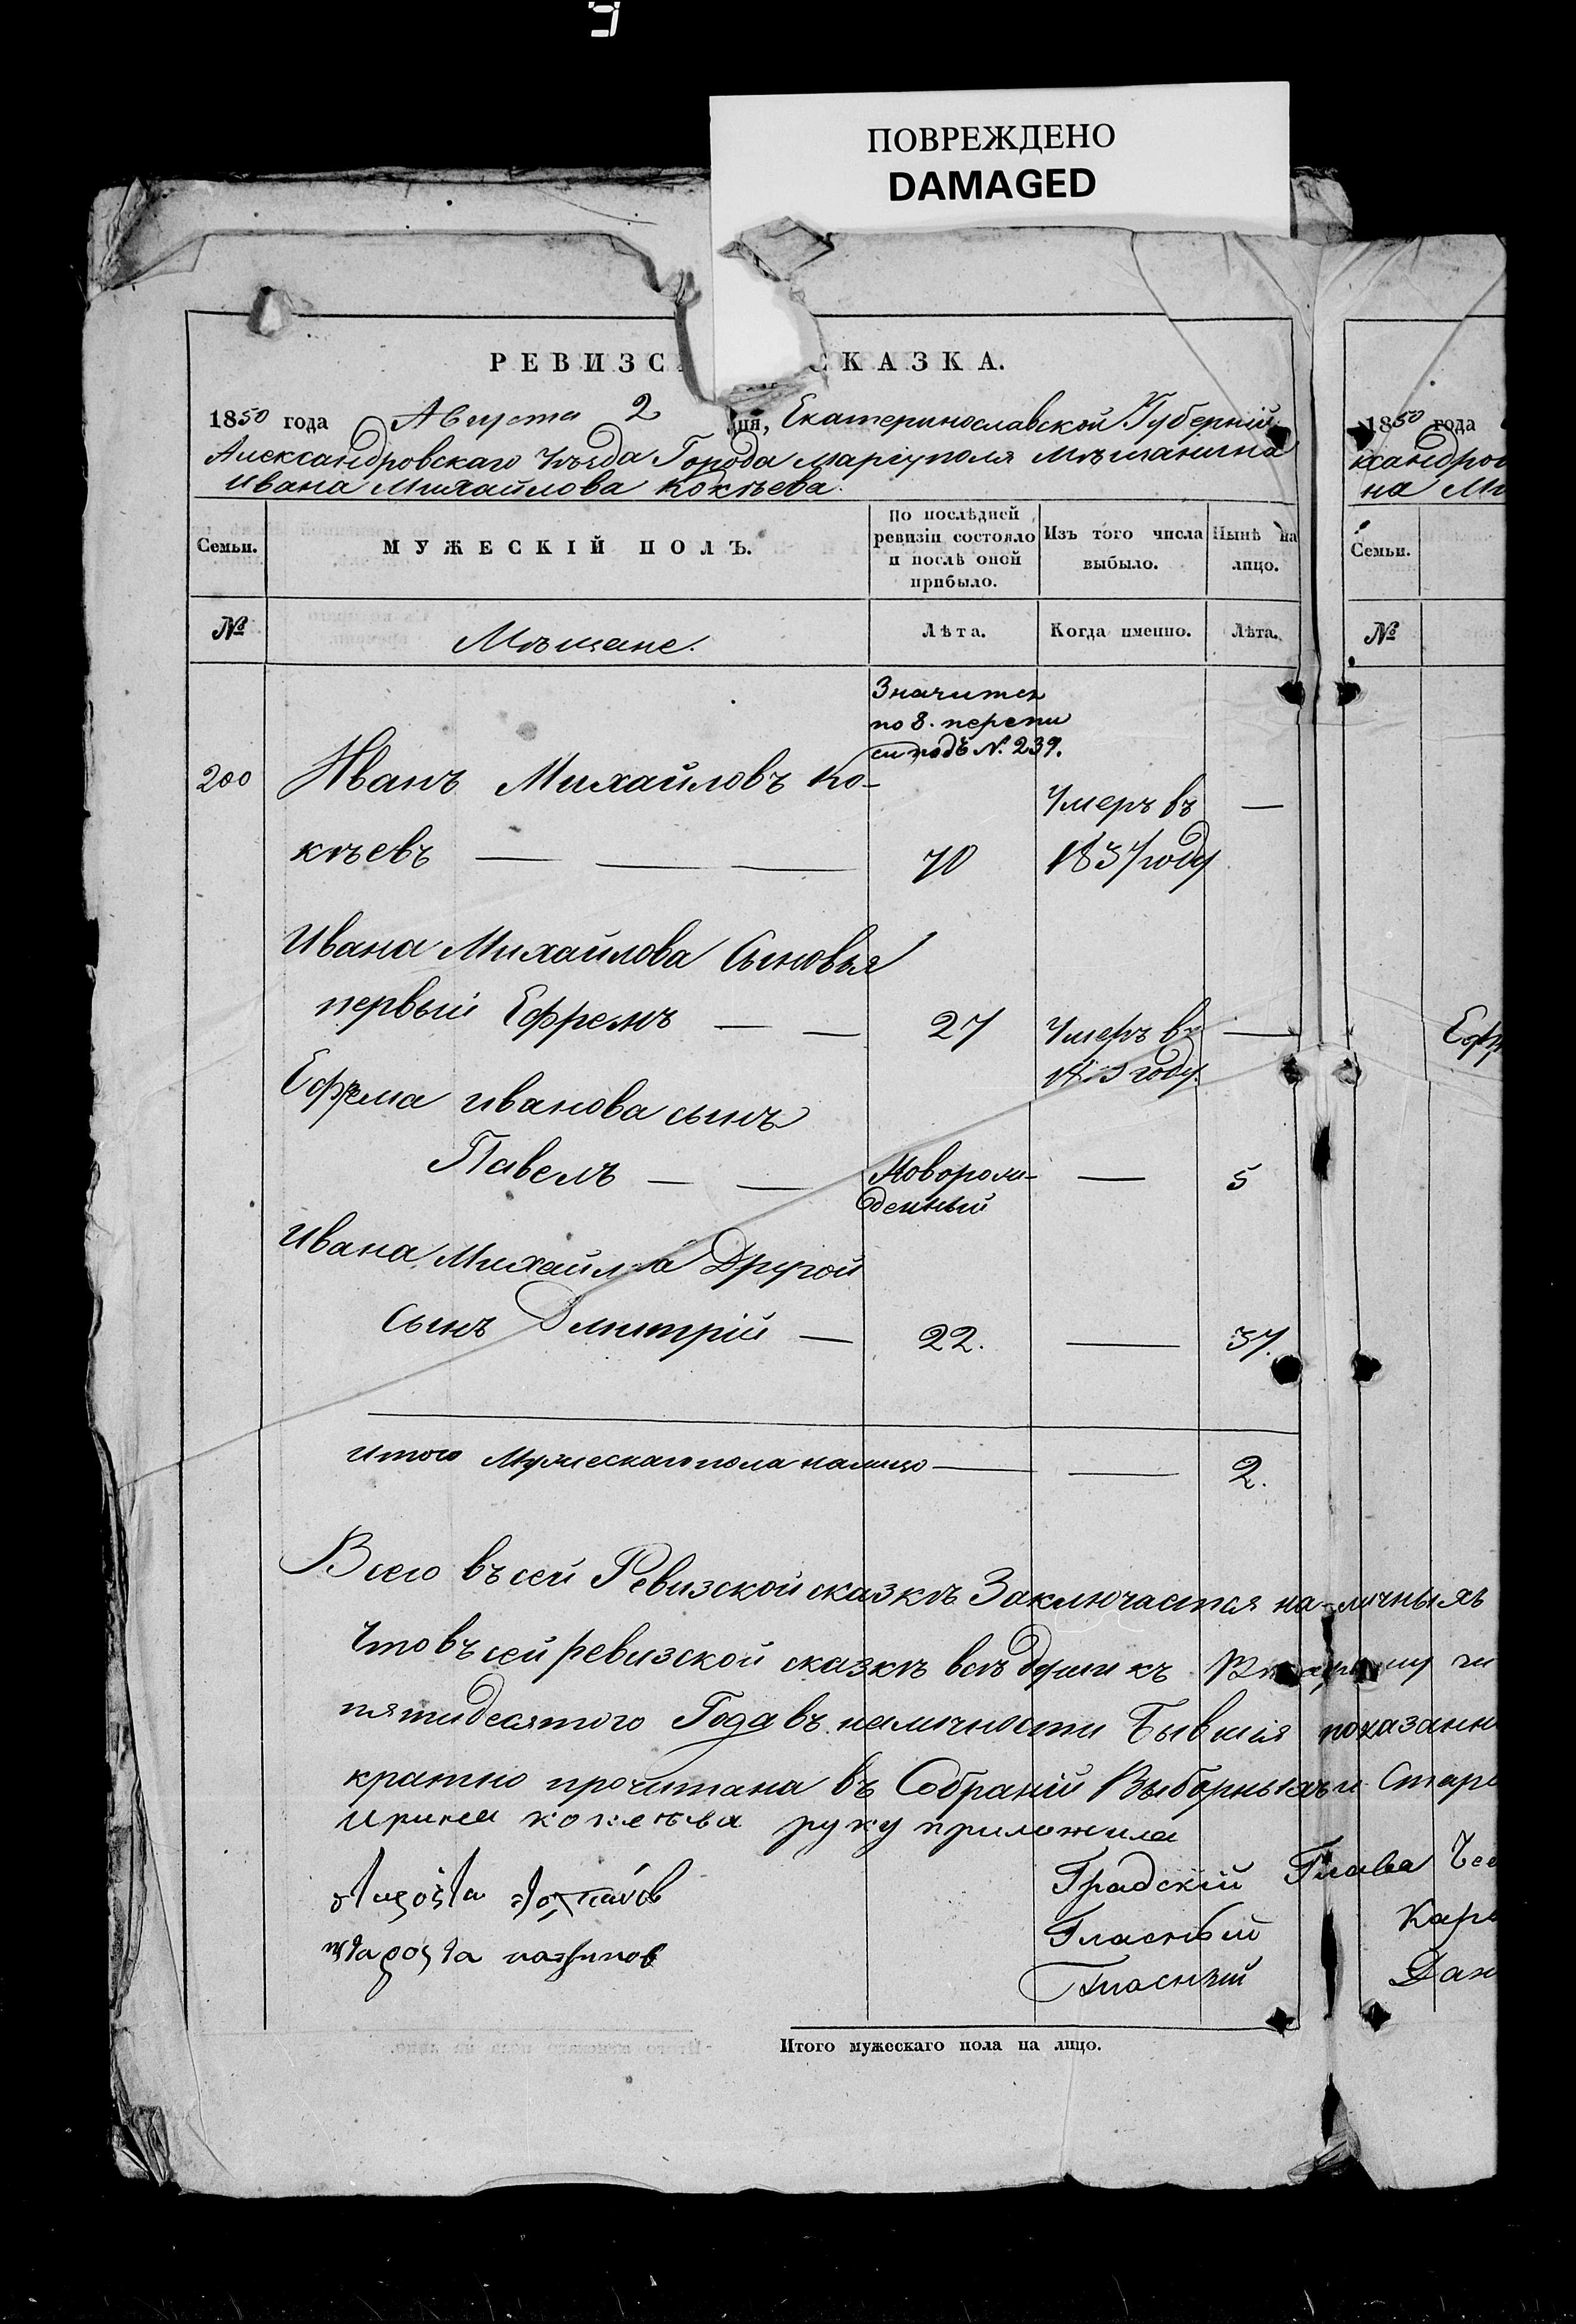 ПОВРЕЖДЕНО
DAMAGED
РЕВИЗС СКАЗКА.
1850 года Августа 2 дня, Екатеринославской Губерніи
Александровскаго Уѣзда Города Маріуполя Мѣщанина
Ивана Михайлова Кокѣева.
Семьи.
МУЖЕСКІЙ ПОЛЪ.
По послѣдней
ревизіи состояло
и послѣ оной
прибыло.
Изъ того числа
выбыло.
Нынѣ на
лицо.
№
Мѣщане.
Лѣта.
Когда именно.
Лѣта.
Значится
по 8. перепи
си подъ №. 239.
200 Иванъ Михайловъ Ко-
кѣевъ — — — 70
Умеръ въ —
1837 году
Ивана Михайлова Сыновья
первый Ефремъ — — 27 Умеръ въ —
году.
Ефрема Иванова сынъ
Павелъ — —Новорож-
денный — 5
Ивана Михайлова Другой
Сынъ Дмитрій — 22. — 37.
Итого Мужескаго пола налицо — — 2.
Всего въ сей Ревизской сказкѣ Заключается на-личныхъ
Что въ сей ревизской сказкѣ всѣ души къ
пятидесятого Года въ наличности Бывшія показанн
кратно прочитана въ Собраніи Выборныхъ и Старо
Ирина кокѣева руку приложила
Градскій Глава
Гласный Кара
Гласный Дан
Итого мужескаго пола на лицо.
1850 года
ксандров
на Ми
Семьи.
№
Ефр